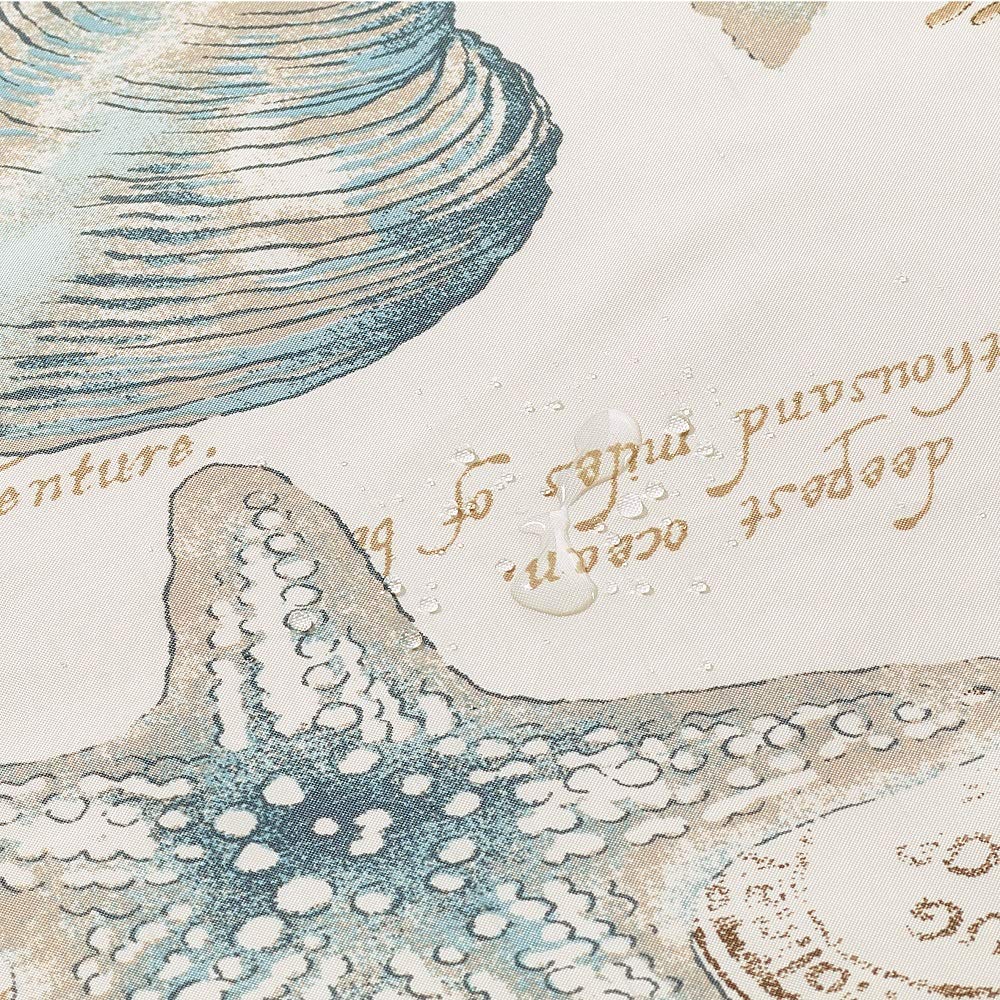 enture.
deepest ocean.
thousand miles of